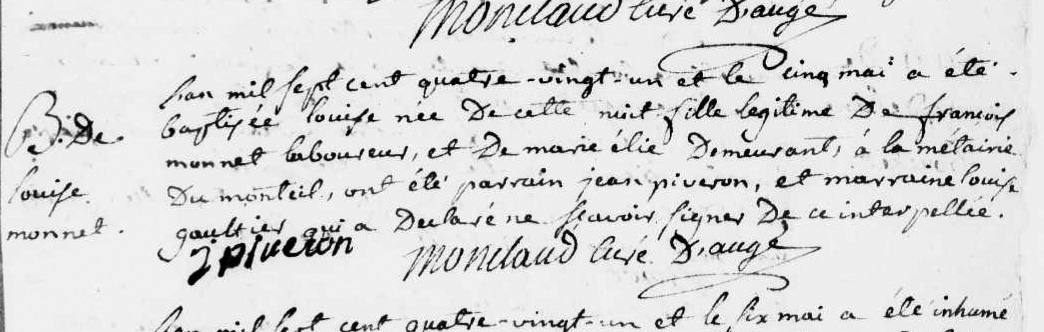 Monclaud Curé D'augé
B. De
louise
monnet.
Lan mil sept cent quatre-vingt-un et le cinq mai a été
baptisée louise née De cette nuit fille legitime De françois
monnet laboureur, et De marie élie Demeurants à la métairie
Du monteil, ont été parrain jean piveron, et marraine louise
gaultier qui a Declaré ne sçavoir signer De ce interpellée.
J piveron Monclaud Curé D'augé
Lan mil sept cent quatre-vingt-un et le six mai a été inhumé